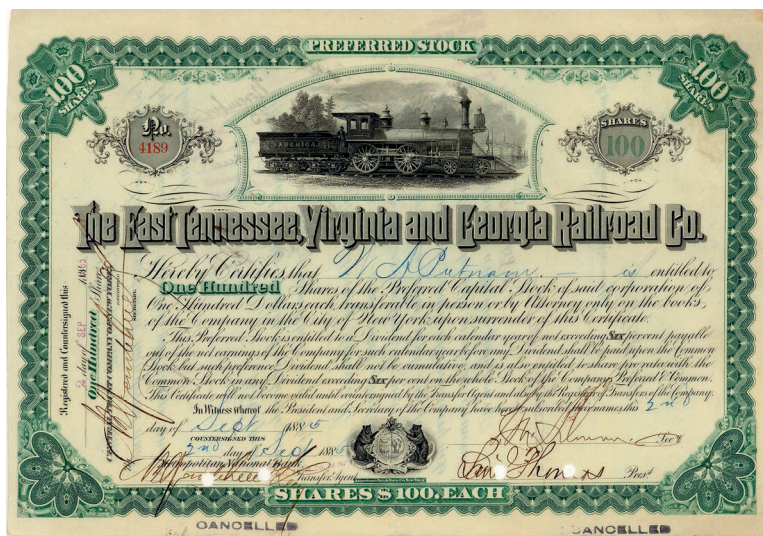 PREFERRED STOCK
100 SHARES
100 SHARES
No. 4189
AMERICA
SHARES 100
The East Tennessee, Virginia and Georgia Railroad Co.
Hereby Certifies that W A Putnam is entitled to
One Hundred Shares of the Preferred Capital Stock of said corporation of
One Hundred Dollars each, transferable in person or by Attorney only on the books
of the Company in the City of New York upon surrender of this Certificate.
This Preferred Stock is entitled to a Dividend for each calendar year of not exceeding Six per cent payable
out of the net earnings of the Company for such calendar year before any Dividend shall be paid upon the Common
Stock but such preference Dividend shall not be cumulative, and is also entitled to share pro rata with the
Common Stock in any Dividend exceeding Six per cent on the whole Stock of the Company Preferred & Common.
This Certificate will not become valid until countersigned by the Transfer Agent and also by the Registrar of Transfers of the Company.
In Witness Whereof the President and Secretary of the Company have hereunto subscribed their names this 2nd
day of Sept 1885
COUNTERSIGNED THIS
2nd day of Sept 1885
Metropolitan National Bank
Transfer Agent
Sec'y
Sam Thomas Prest
Registered and Countersigned this
2 day of SEP 1885
One Hundred Shares
SHARES $100. EACH
CANCELLED
CANCELLED